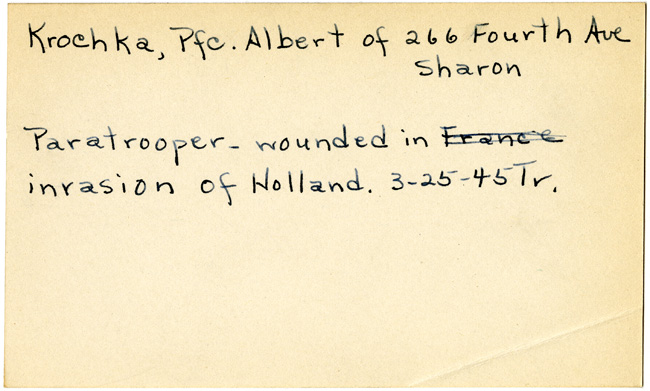 Krochka, Pfc. Albert of 266 Fourth Ave
Sharon
Paratrooper - wounded in France
invasion of Holland. 3-25-45 Tr.